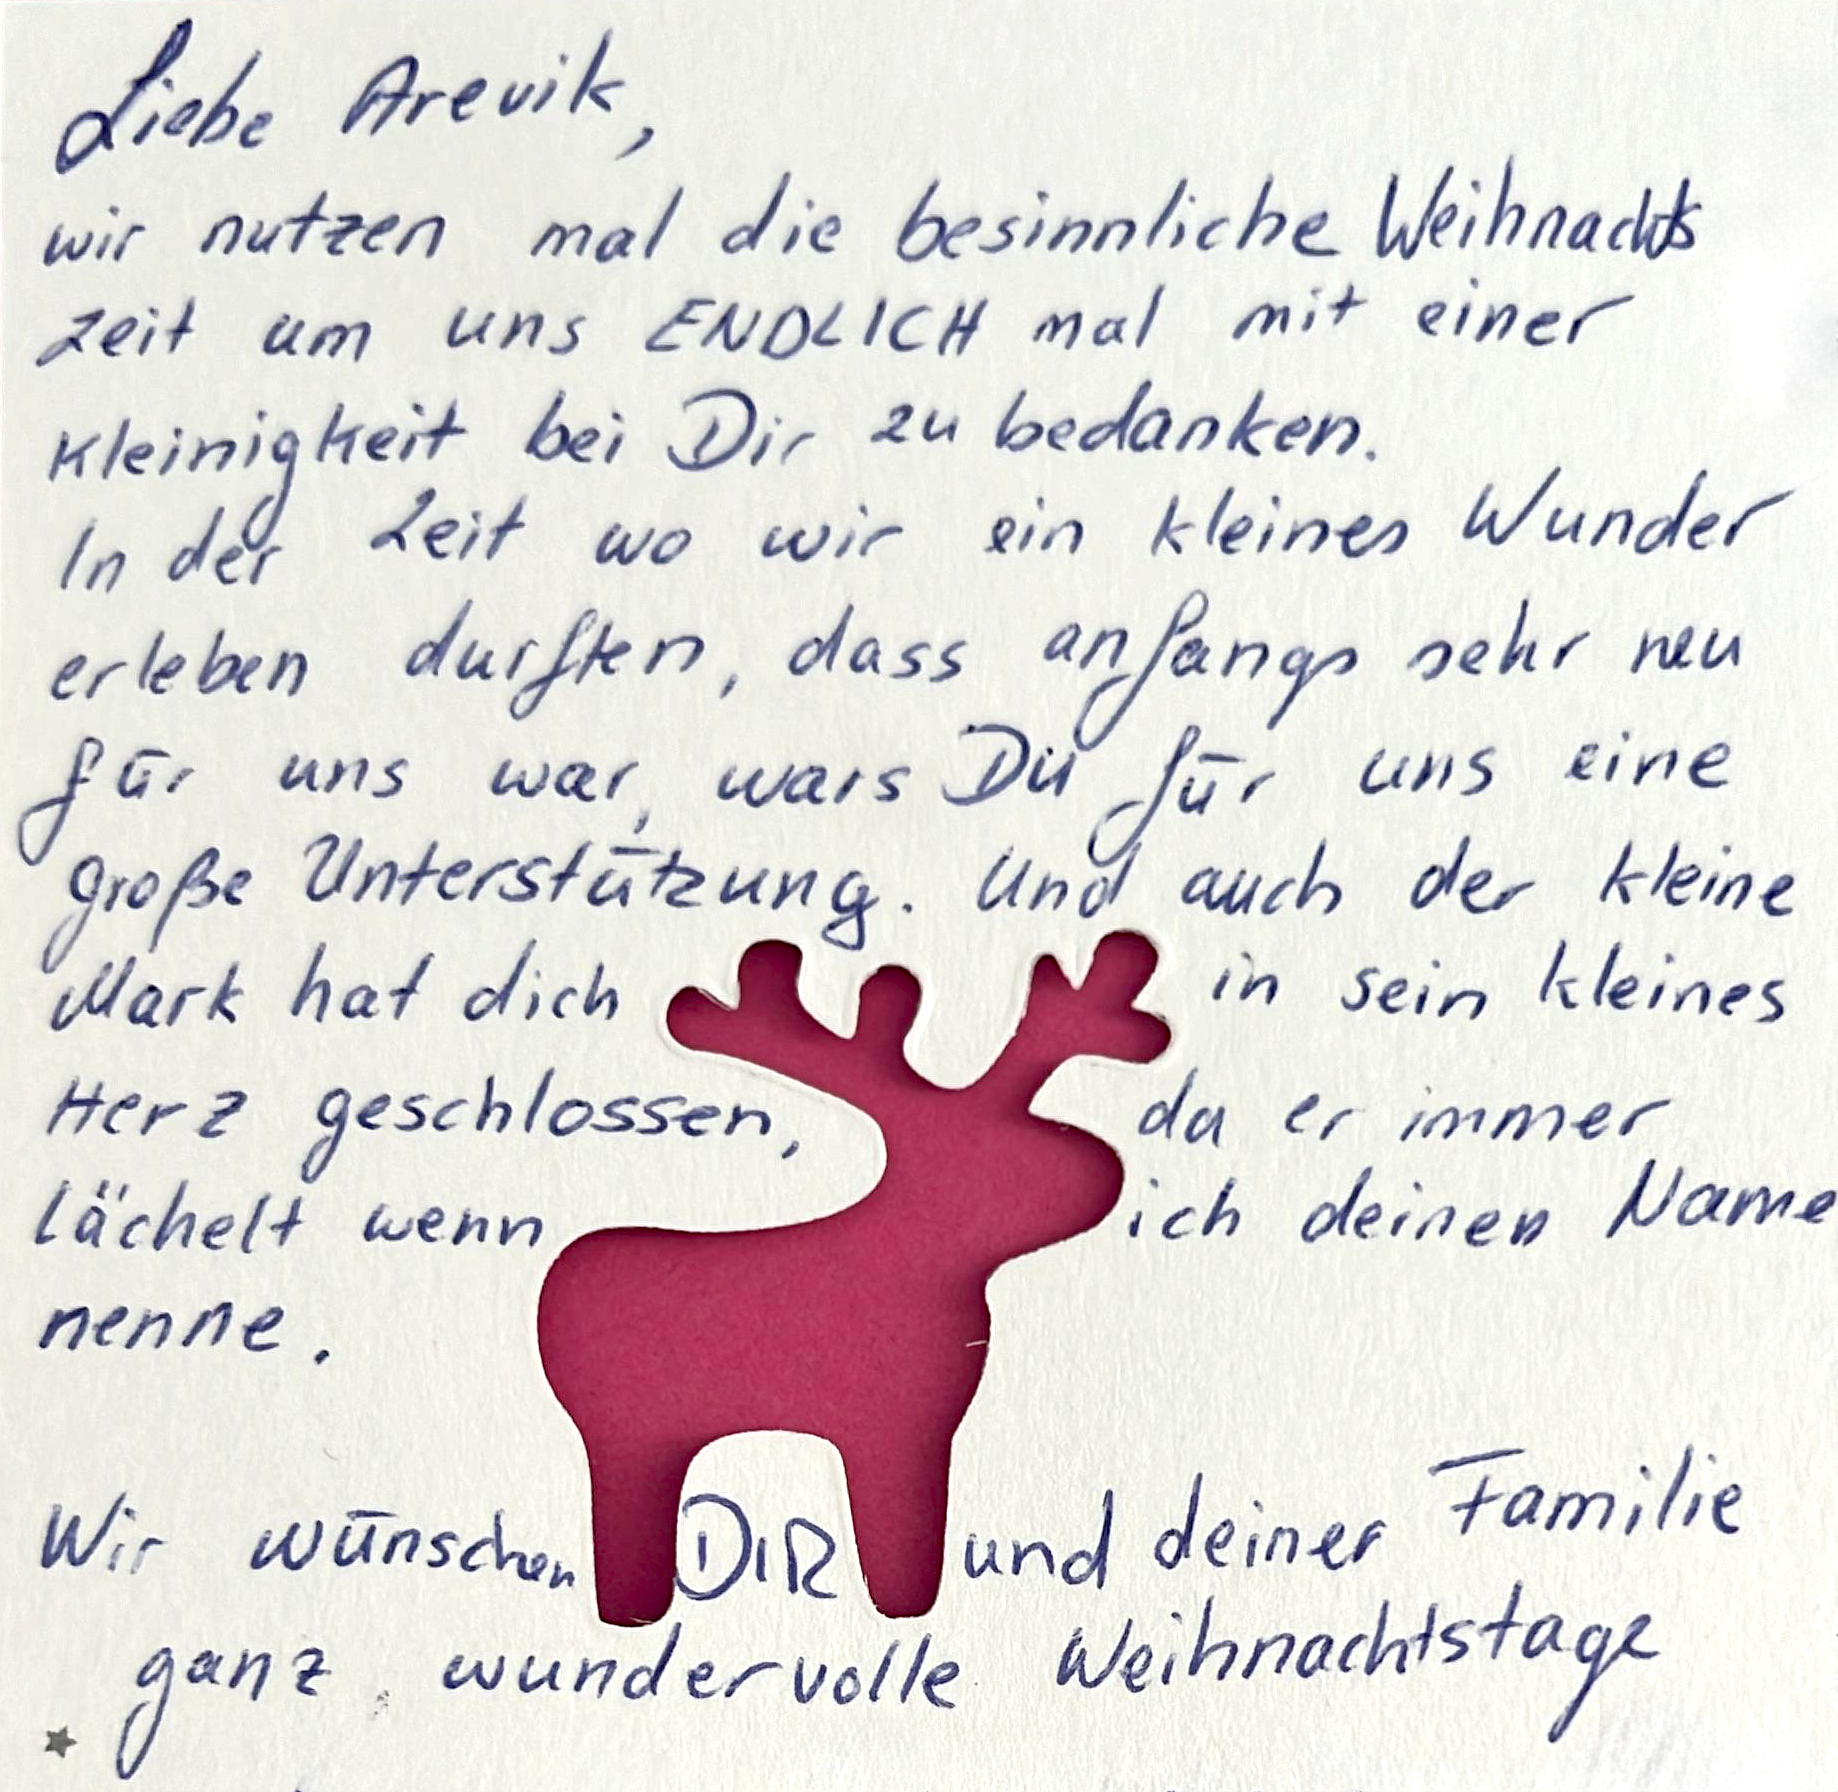 Liebe Arevik,
wir nutzen mal die besinnliche Weihnachts
zeit um uns ENDLICH mal mit einer
Kleinigkeit bei Dir zu bedanken.
In der Zeit wo wir ein kleines Wunder
erleben durften, dass anfangs sehr neu
für uns war, wars Du für uns eine
große Unterstützung. Und auch der kleine
Mark hat dich in sein kleines
Herz geschlossen, da er immer
lächelt wenn ich deinen Name
nenne.
Wir wünschen DIR und deiner Familie
ganz wundervolle Weihnachtstage